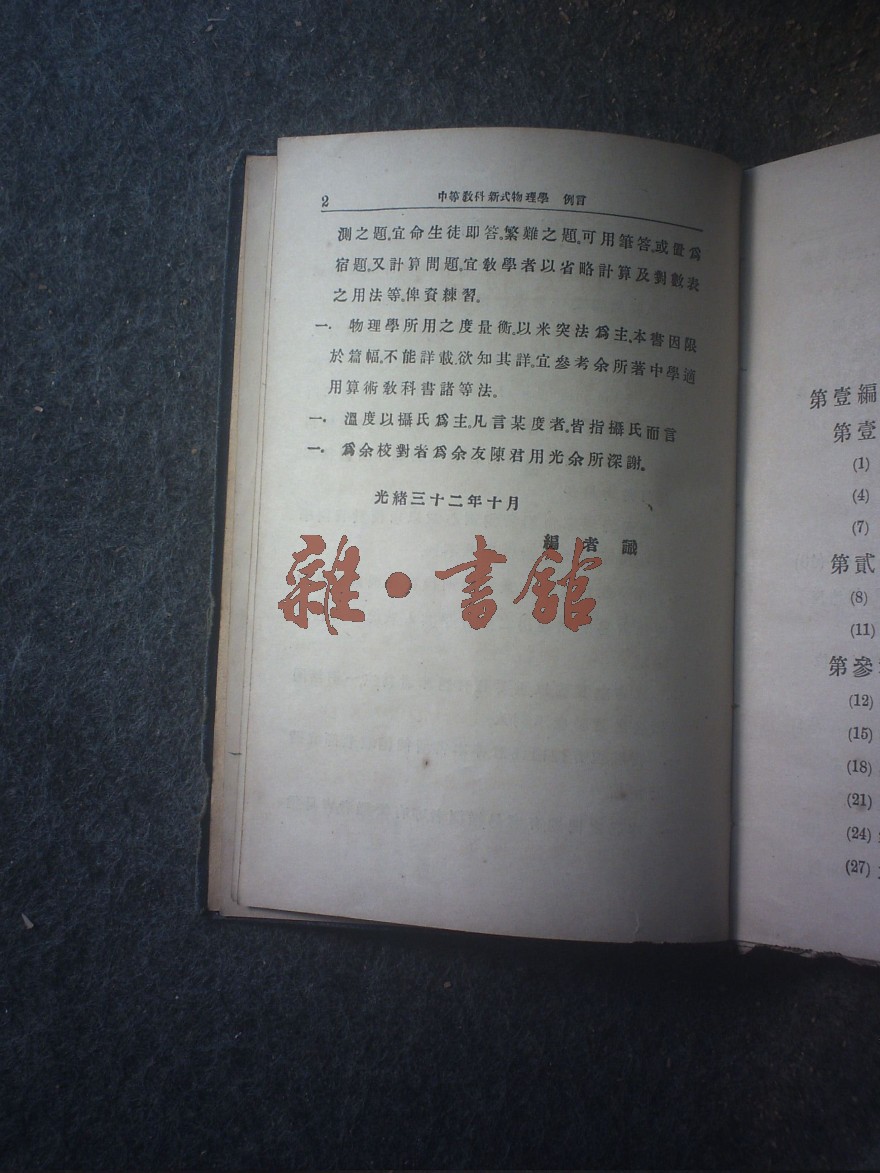 2 中等教科新式物理學 例言
測之題,宜命生徒卽答,繁難之題,可用筆答,或置爲
宿題,又計算問題,宜敎學者以省略計算及對數表
之用法等,俾資練習。
一. 物理學所用之度量衡,以米突法爲主,本書因限
於篇幅,不能詳載,欲知其詳,宜參考余所著中學適
用算術敎科書諸等法。
一. 溫度以攝氏爲主,凡言某度者,皆指攝氏而言
一. 爲余校對者爲余友陳君用光余所深謝。
光緒三十二年十月
編 者 識
雜·書館
第壹編
第壹
(1)
(4)
(7)
第貳
(8)
(11)
第參
(12)
(15)
(18)
(21)
(24)
(27)